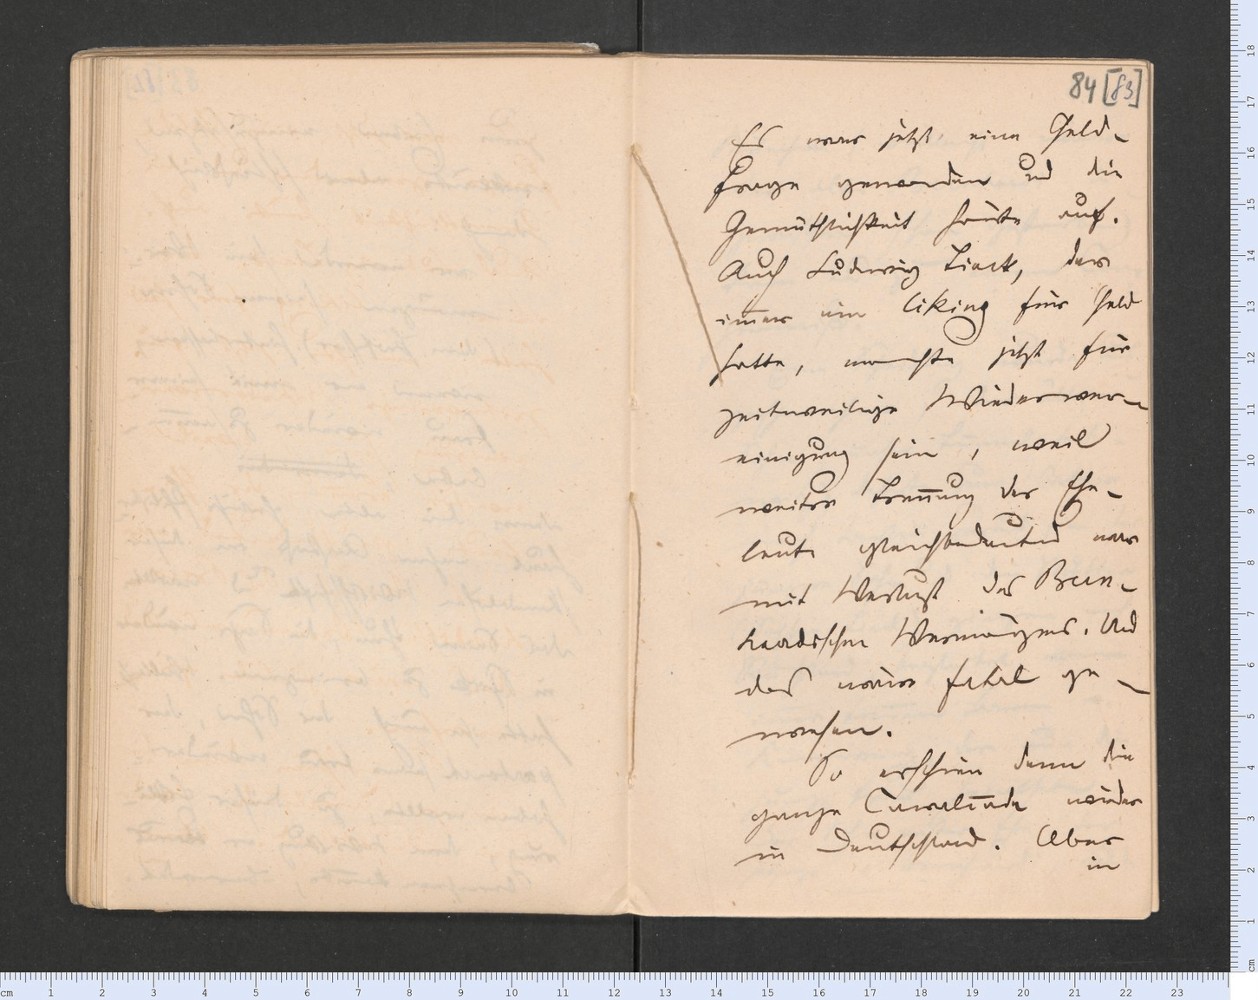 84 [83]
Es war jetzt eine Geld-
frage geworden und die
Gemüthlichkeit hörte auf.
Auch Ludwig Tieck, der
imer ein liking für Geld
hatte, mochte jetzt für
zeitweilige Wiederver-
einigung sein, weil
weitre Trennung der Ehe-
leute gleichbedeutend war
mit Verlust des Burn-
Vermögens. Und
das wäre fatal ge-
wesen.
So erschien denn die
ganze Cavalcade wieder
in Deutschland. Aber
in